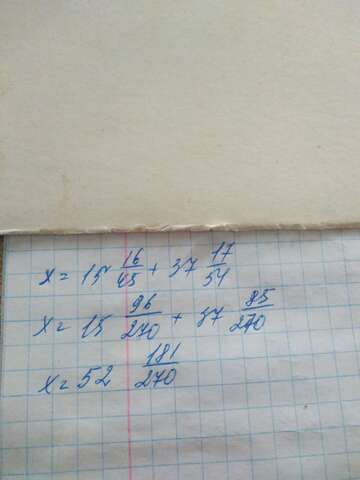 x = 15 16/45 + 37 17/54
x = 15 96/270 + 37 85/270
x = 52 181/270